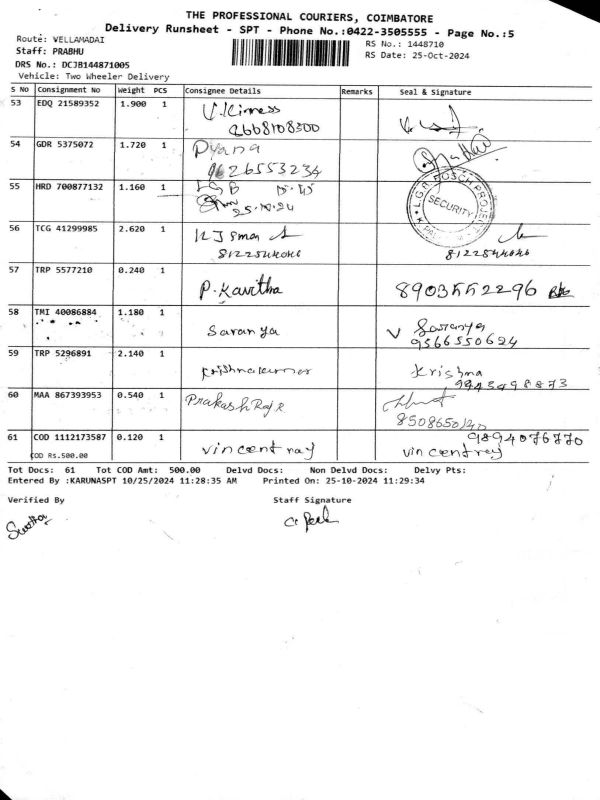 THE PROFESSIONAL COURIERS, COIMBATORE
Delivery Runsheet - SPT - Phone No.:0422-3505555 - Page No.:5
Route: VELLAMADAI
RS No.: 1448710
Staff: PRABHU
RS Date: 25-Oct-2024
DRS No.: DCJB144871005
Vehicle: Two Wheeler Delivery
S No Consignment No Weight PCS Consignee Details Remarks Seal & Signature
53 EDQ 21589352 1.900 1 V.Kirness
9668108300
54 GDR 5375072 1.720 1 Dyana
9626553234
55 HRD 700877132 1.160 1 LGB
25.10.24
L.G.B. BOSCH PROJECT
SECURITY
56 TCG 41299985 2.620 1
57 TRP 5577210 0.240 1 P.Kavitha 8903552296
58 TMI 40086884 1.180 1 Saranya V Saranya
9566550624
59 TRP 5296891 2.140 1 Krishnakumar Krishna
9943498873
60 MAA 867393953 0.540 1 Prakash Raj R
61 COD 1112173587 0.120 1 vincent raj 9894076770
COD Rs.500.00 vincent raj
Tot Docs: 61 Tot COD Amt: 500.00 Delvd Docs: Non Delvd Docs: Delvy Pts:
Entered By :KARUNASPT 10/25/2024 11:28:35 AM Printed On: 25-10-2024 11:29:34
Verified By Staff Signature